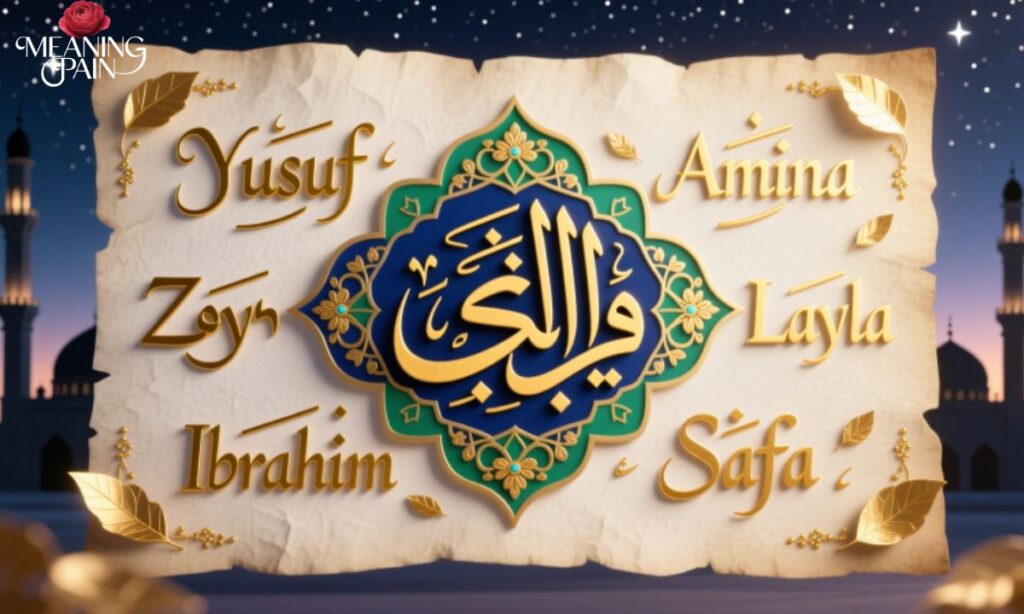 MEANING
PAIN
Yusuf
Amina
Layla
Ibrahim
Safa